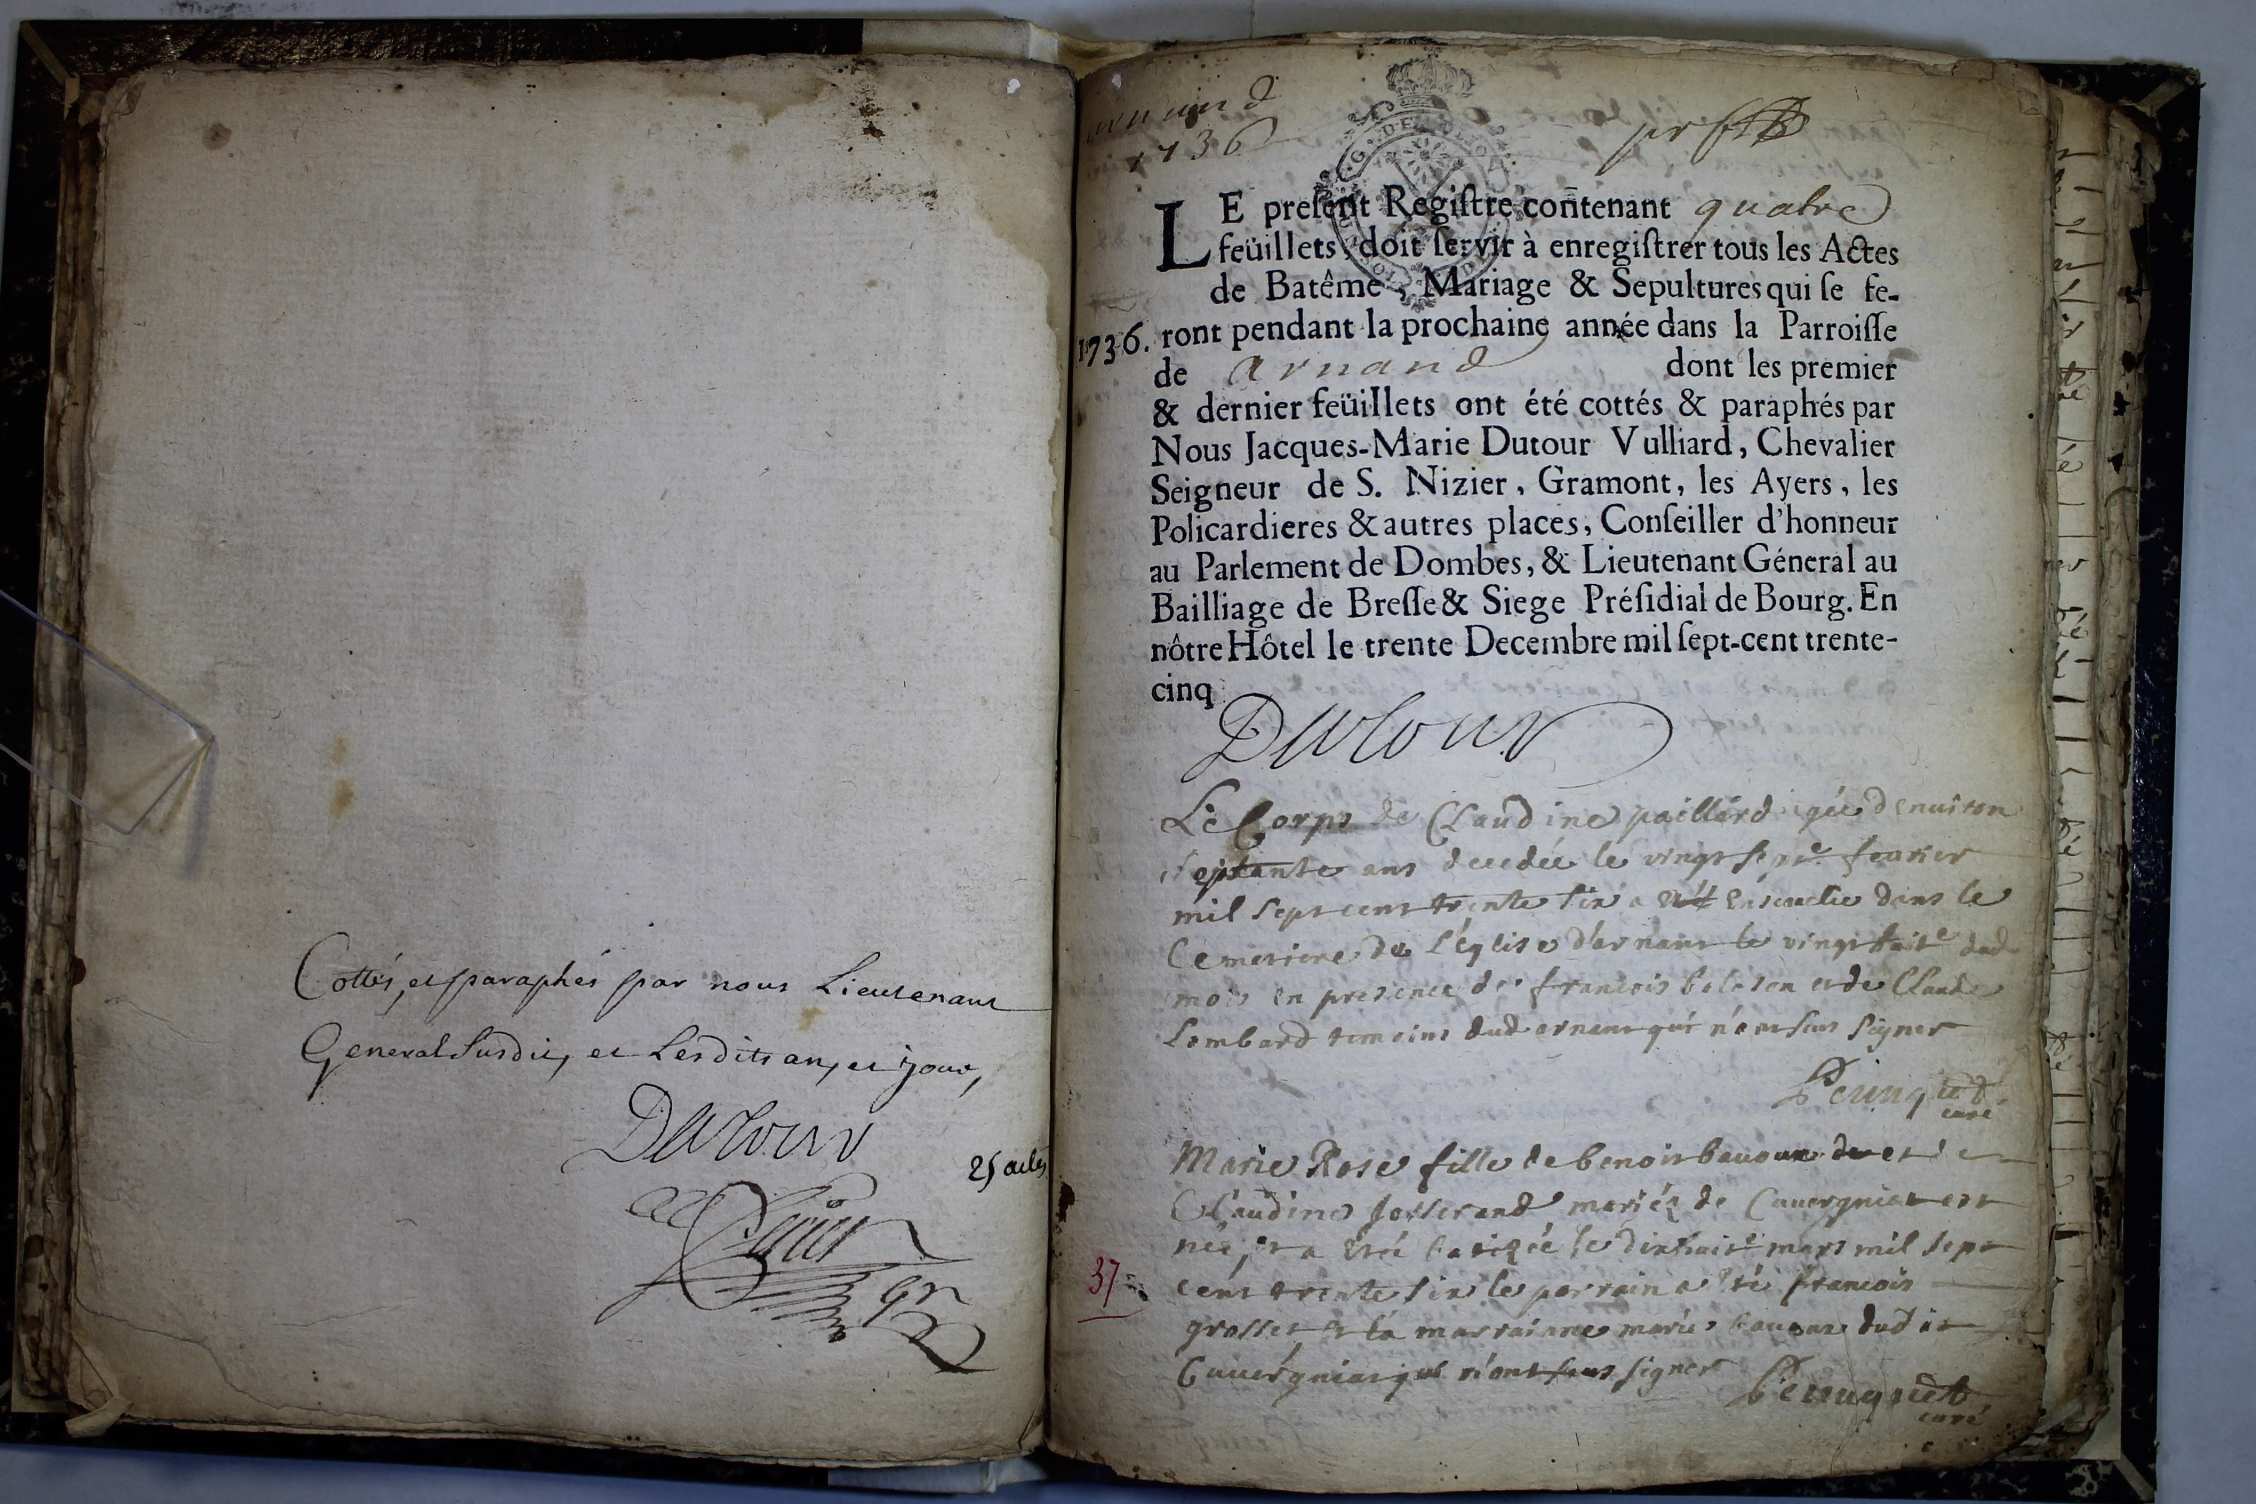 Cottés, et paraphés par nous Lieutenant
General Susdit, et Lesdits an, et jour,
Dutour
25 actes
1736
LE preſent Regiſtre contenant quatre
feüillets, doit ſervir à enregiſtrer tous les Actes
de Batême, Mariage & Sepultures qui ſe fe-
1736. ront pendant la prochaine année dans la Parroiſſe
de arnand dont les premier
& dernier feüillets ont été cottés & paraphés par
Nous Jacques-Marie Dutour Vulliard, Chevalier
Seigneur de S. Nizier, Gramont, les Ayers, les
Policardieres & autres places, Conſeiller d'honneur
au Parlement de Dombes, & Lieutenant Géneral au
Bailliage de Breſſe & Siege Préſidial de Bourg. En
nôtre Hôtel le trente Decembre mil ſept-cent trente-
cinq
Dutour
Le Corps de Claudine paillard agée denuiron
septante ans decedée le vingt sept.e feurier
mil sept cent trente six a été ensevelie dans le
Cemetiere de l'église d'arnant le vingt huit.e dud
mois en presence de francois et de Claude
Lombard temoins dud arnant qui n'ont sceus signer
curé
Marie Rose fille de benoit et de
Claudine Josserand mariéz de Cuuergniat est
née, et a été batizée le dixhuit.e mars mil sept
cent trente six le parrain a été francois
grosset et la marrainne marie dudit
Cuuergniat qui n'ont sceus signer
curé
37